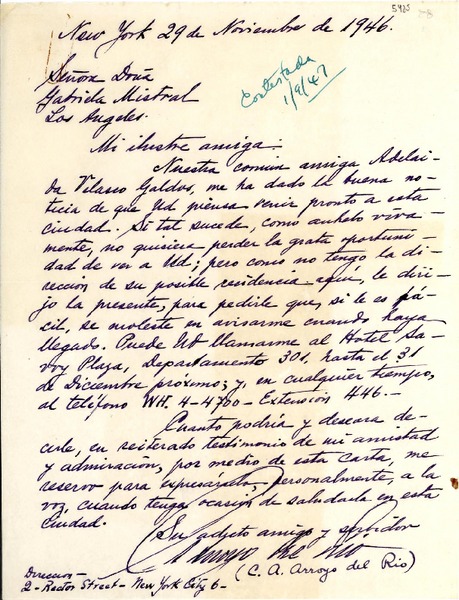 New York 29 de Noviembre de 1946.
Señora Doña
Gabriela Mistral
Los Angeles.
Contestada
1/9/47
Mi ilustre amiga:
Nuestra común amiga Adelai-
da Velasco Galdos, me ha dado la buena no-
ticia de que Ud piensa venir pronto a esta
ciudad. Si tal sucede, como anhelo viva-
mente, no quisiera perder la grata oportuni-
dad de ver a Ud; pero como no tengo la di-
reccion de su posible residencia aquí, le diri-
jo la presente, para pedirle que, si le es fá-
cil, se moleste en avisarme cuando haya
llegado. Puede Ud llamarme al Hotel Sa-
voy Plaza, Departamento 301, hasta el 31
de Diciembre próximo; y, en cualquier tiempo,
al teléfono WH. 4-4700 - Extensión 446.-
Cuanto podría y deseara de-
cirle, en reiterado testimonio de mi amistad
y admiración, por medio de esta carta, me
reservo para expresarlo, personalmente, a la
voz, cuando tenga ocasión de saludarla en esta
ciudad.
Su adicto amigo y servidor
Arroyo del Río
(C. A. Arroyo del Río)
Direccion -
2 - Rector Street - New York City 6 -